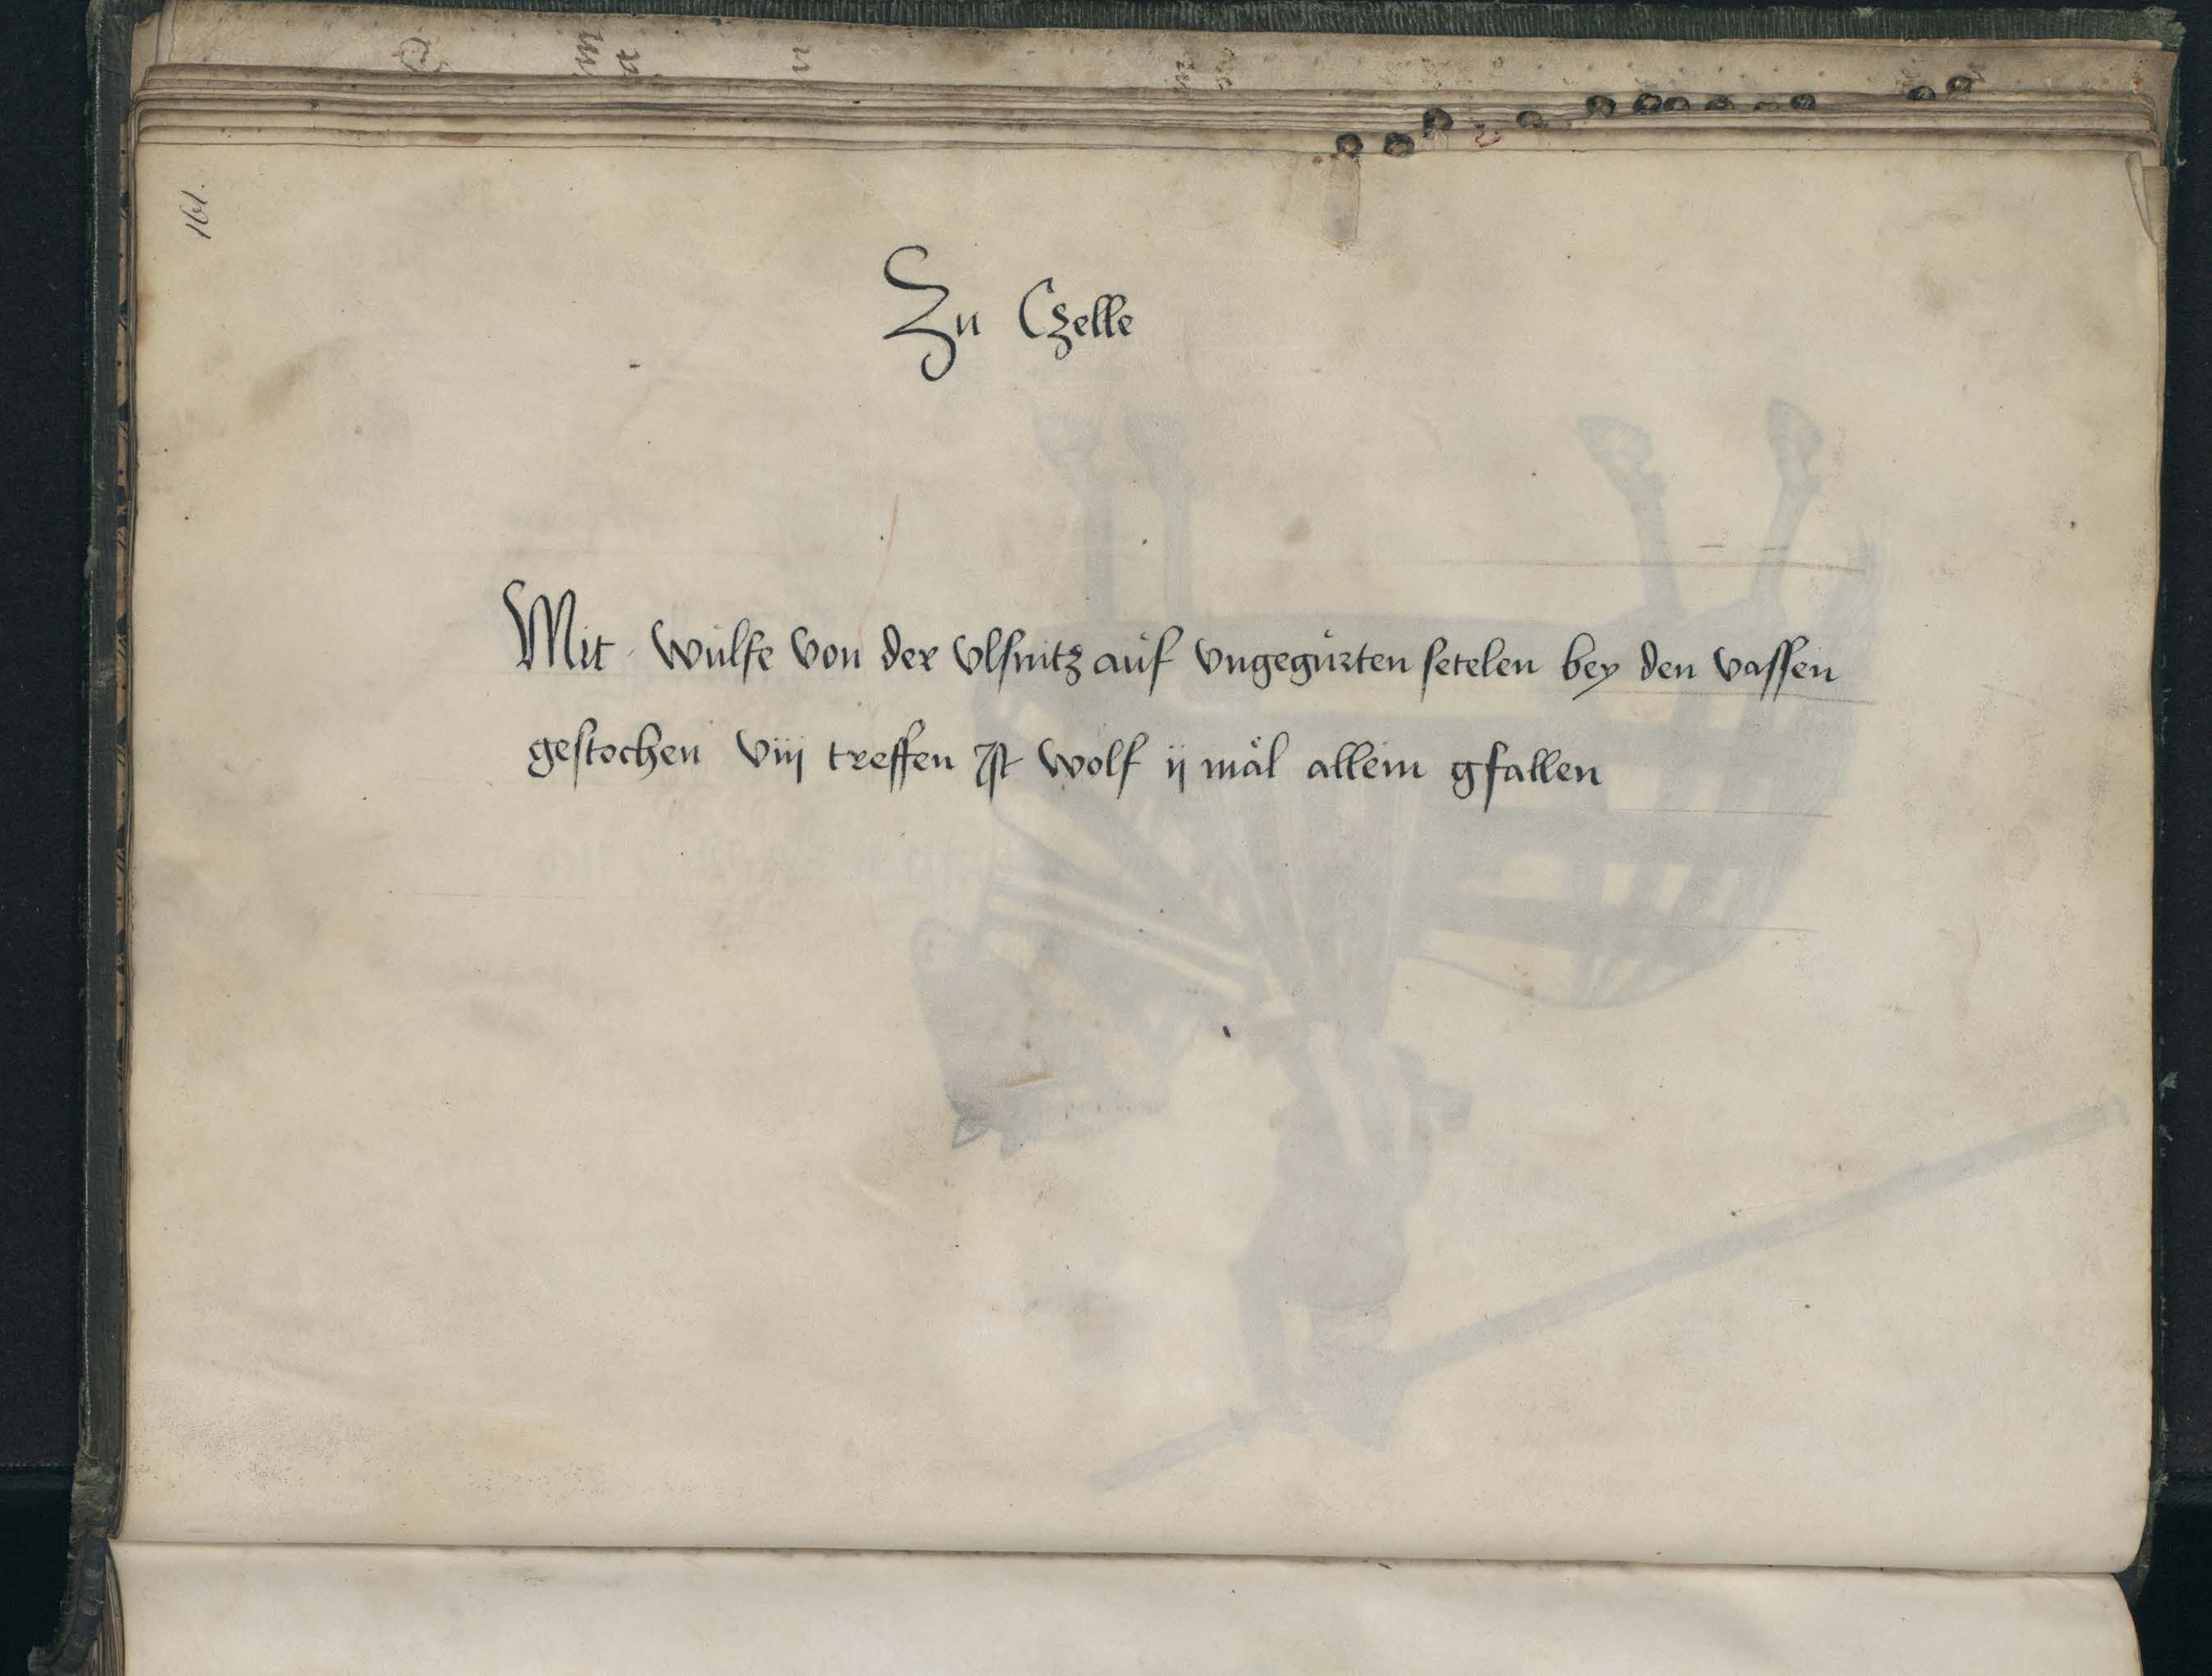 161.
Zu Czelle
Mit wulfe von der vlsnitz auf vngegurten setelen bey den vassen
gestochen viij treffen Ist wolf ij mal allein gfallen